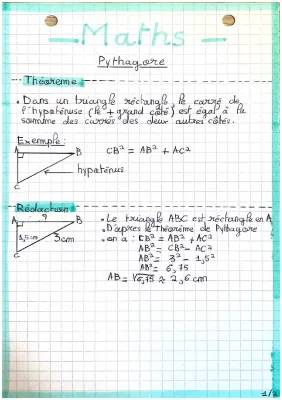 Maths
Pythagore
Théoreme :
• Dans un triangle réctangle le carré de
l'hypoténuse (le + grand côté) est égal à la
somme des carrés des deux autres côtés.
Exemple :
A B CB² = AB² + AC²
hypoténus
C
Rédaction :
• Le triangle ABC est réctangle en A
A ? B • D'après le Théorème de Pythagore
on a : CB² = AB² + AC²
1,5 cm 3 cm AB² = CB² - AC²
C AB² = 3² - 1,5²
AB² = 6,75
AB = √6,75 ≈ 2,6 cm
1/2